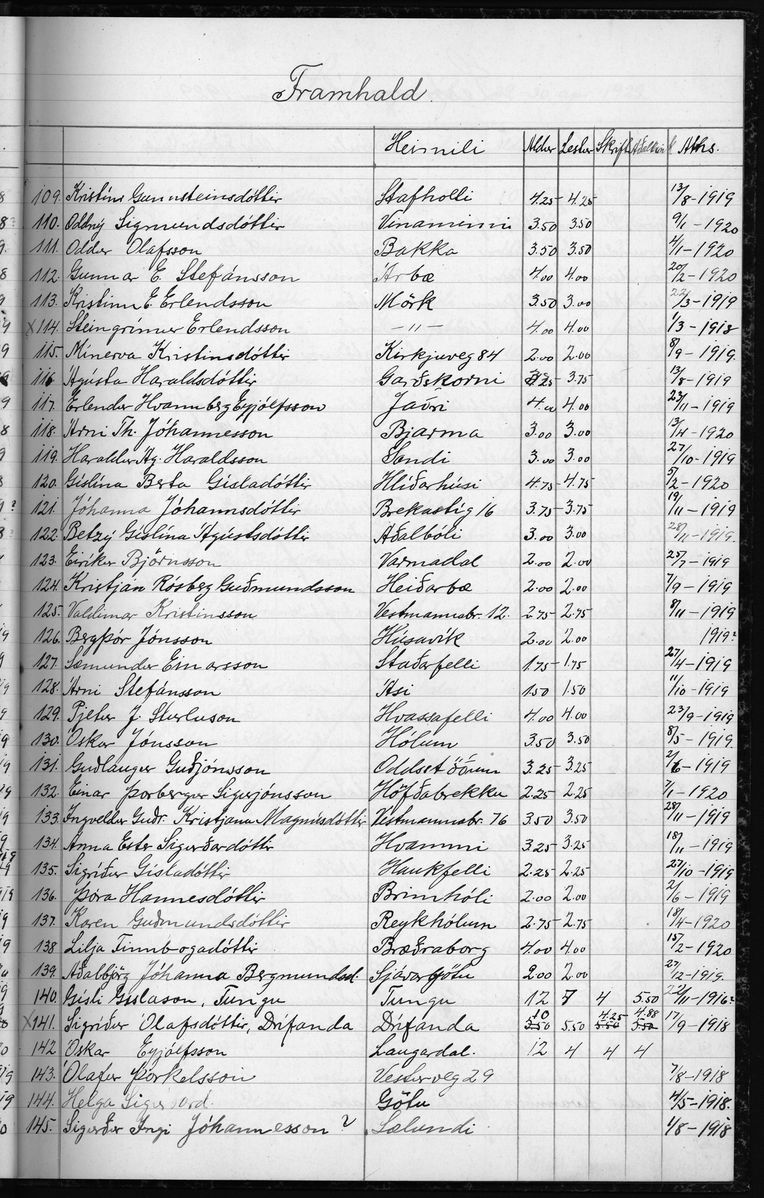 Framhald.
Heimili Aldur Lestur Skrift Aths.
109. Kristíns Gunnsteinsdóttir Stafholti 4.25 4.25 13/8-1919
110. Oddný Sigmundsdóttir Vinaminni 3.50 3.50 9/1-1920
111. Oldur Olafsson Bakka 3.50 3.50 4/1-1920
112. Gunnar E. Stefánsson Árbæ 4.00 4.00 20/2-1920
113. Kristinn E. Erlendsson Mörk 3.50 3.00 22/3-1919
x114. Steingrímur Erlendsson -"- 4.00 4.00 1/3-1918
115. Minerva Kristinsdóttir Kirkjuveg 84 2.00 2.00 8/9-1919.
116 Ágústa Haraldsdóttir Garðshorni 3.75 13/8-1919
117. Erlendur Hvannberg Eyjólfsson Jaðri 4.00 4.00 23/11-1919
118. Arni Th. Jóhannesson Bjarma 3.00 3.00 13/4-1920
119. Haraldur Ág. Haraldsson Sandi 3.00 3.00 27/10-1919
120. Gíslína Berta Gísladóttir Hlíðarhúsi 4.75 4.75 5/2-1920
121. Jóhanna Jóhannsdóttir Brekastíg 16 3.75 3.75 19/11-1919
122. Betzy Gíslína Ágústsdóttir Aðalbóli 3.00 3.00 28/11-1919.
123. Eiríkur Björnsson Varmadal 2.00 2.00 25/7-1919
124. Kristján Rósberg Guðmundsson Heiðarbæ 2.00 2.00 7/9-1919
125. Valdimar Kristinsson Vestmannabr. 12. 2.75 2.75 8/11-1919
126. Bergþór Jónsson Húsavík 2.00 2.00 1919?
127. Sæmundur Einarsson Staðarfelli 1.75 1.75 27/4-1919
128. Árni Stefánsson Ási 1.50 1.50 11/10-1919
129. Pjetur J. Sturluson Hvassafelli 4.00 4.00 23/9-1919
130. Óskar Jónsson Hólum 3.50 3.50 8/5-1919
131. Guðlaugur Guðjónsson Oddsstöðum 3.25 3.25 2/6-1919
132. Einar Þorbergur Sigurjónsson Höfðabrekku 2.25 2.25 7/1-1920
133. Ingveldur Guðr. Kristjana Magnúsdóttir Vestmannabr. 76 3.50 3.50 28/11-1919
134. Anna Ester Sigurðardóttir Hvammi 3.25 3.25 18/11-1919
135. Sigríður Gísladóttir Haukfelli 2.25 2.25 27/10-1919
136. Þóra Hannesdóttir Brimhóli 2.00 2.00 2/6-1919
137. Karen Guðmundsdóttir Reykhólum 2.75 2.75 18/4-1920
138 Lilja Finnbogadóttir Bræðraborg 4.00 4.00 15/2-1920
139. Aðalbjörg Jóhanna Bergmundsd. Sjávargötu 2.00 2.00 27/12-1919.
140. Gísli Gíslason, Tungu Tungu 12 7 4 5.50 22/11-1916?
x141. Sigríður Ólafsdóttir, Drífanda Drífanda 10 5.50 5.50 4.25 5.50 4.88 5.50 17/9-1918
142 Óskar Eyjólfsson Laugardal. 12 4 4 4
143. Ólafur Þorkelsson Vesturveg 29 7/8-1918
144. Helga Götu 4/5-1918.
145. Sigurður Ingi Jóhannesson? Sælundi 1/8-1918